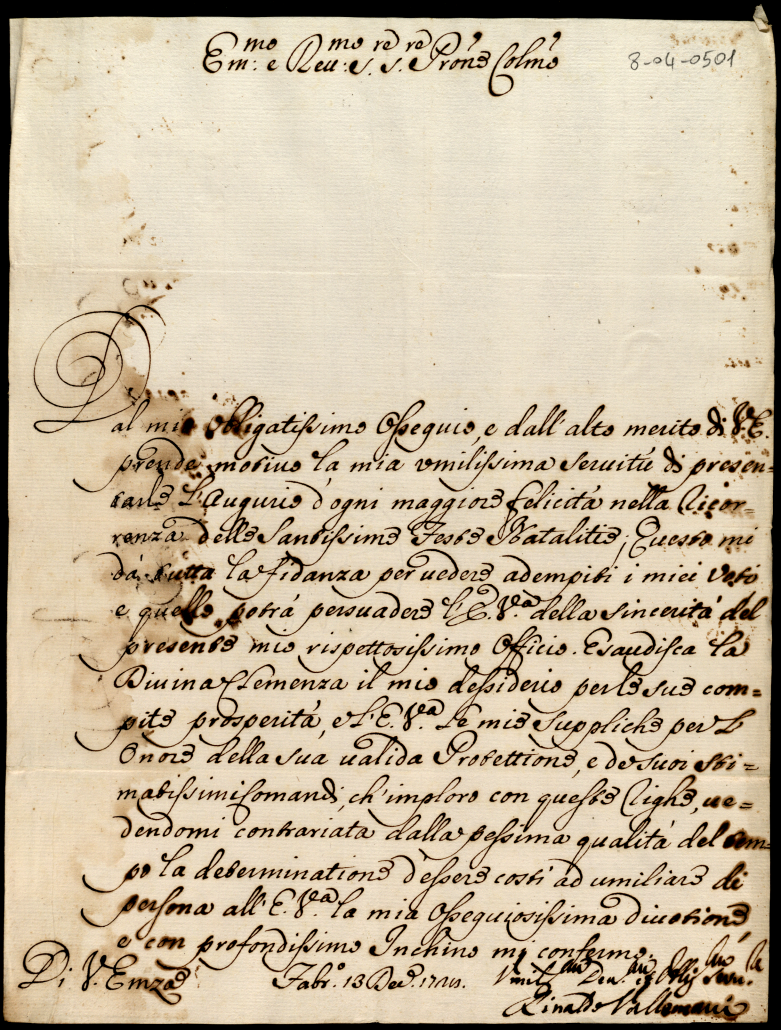 Em:mo e Reu:mo s.re s.re Prone Colmo
8-04-0501
Dal mio obligatissimo ossequio, e dall'alto merito di V.E.
prende motivo la mia vmilissima seruitù di presen=
tarle l'Augurio d'ogni maggiore felicità nella ricor=
renza delle Santissime Feste Natalitie; Questo mi
dà tutta la fidanza per uedere adempiti i miei voti
e quello potrà persuadere l'E.V.a della sincerità del
presente mio rispettosissimo Officio. Esaudisca la
Diuina Clemenza il mio dessiderio per le sue com=
pite prosperità, e l'E.V.a le mie suppliche per l'
onore della sua ualida Protettione, e de suoi sti=
matissimi comandi, ch'imploro con queste righe, ue=
dendomi contrariata dalla pessima qualità del tem=
po la determinatione d'essere costì ad umiliare di
persona all'E.V.a la mia ossequiosissima diuotione,
e con profondissimo Inchino mi confermo.
Di V. Emza Fabr.o 13 Dec.e Vmil.mo Deu.mo et Oblig.mo Seru.re
Rinaldo Vallemani